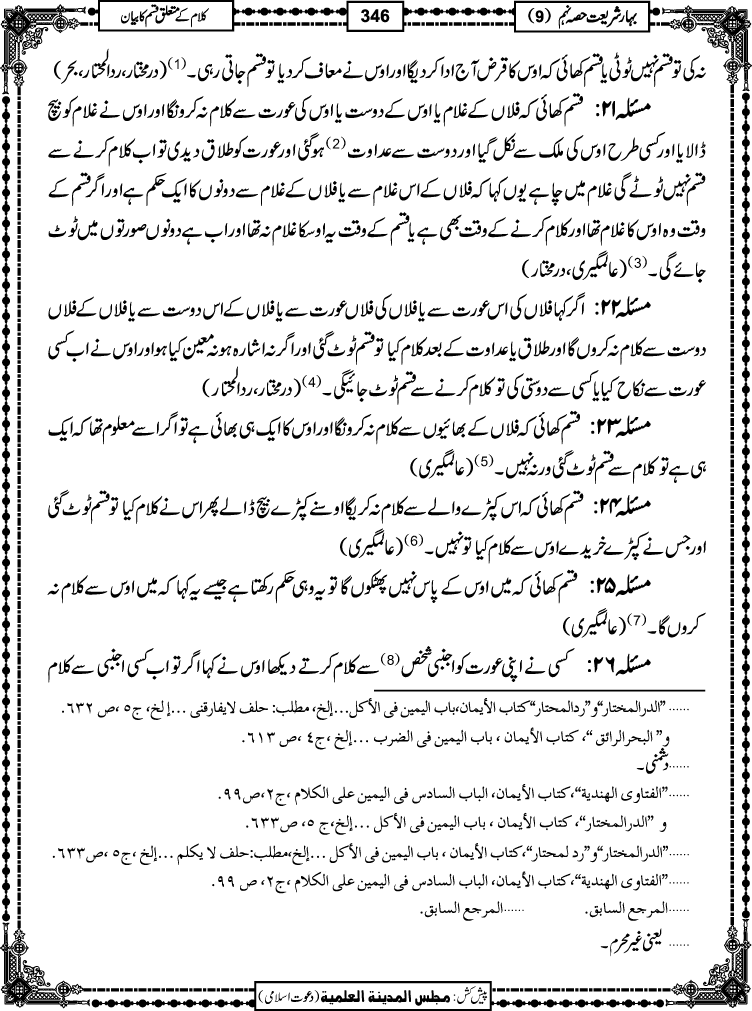 بہار شریعت حصہ نہم (9)
346
کلام کے متعلق قسم کا بیان
نہ کی تو قسم نہیں ٹوٹی یا قسم کھائی کہ اوس کا قرض آج ادا کر دیگا اور اوس نے معاف کر دیا تو قسم جاتی رہی۔(1) (درمختار، ردالمحتار، بحر)
مسئلہ ۲۱: قسم کھائی کہ فلاں کے غلام یا اوس کے دوست یا اوس کی عورت سے کلام نہ کرونگا اور اوس نے غلام کو بیچ
ڈالا یا اور کسی طرح اوس کی ملک سے نکل گیا اور دوست سے عداوت(2) ہوگئی اور عورت کو طلاق دیدی تو اب کلام کرنے سے
قسم نہیں ٹوٹے گی غلام میں چاہے یوں کہا کہ فلاں کے اس غلام سے یا فلاں کے غلام سے دونوں کا ایک حکم ہے اور اگر قسم کے
وقت وہ اوس کا غلام تھا اور کلام کرنے کے وقت بھی ہے یا قسم کے وقت یہ اوسکا غلام نہ تھا اور اب ہے دونوں صورتوں میں ٹوٹ
جائے گی۔(3) (عالمگیری، درمختار)
مسئلہ ۲۲: اگر کہا فلاں کی اس عورت سے یا فلاں کی فلاں عورت سے یا فلاں کے اس دوست سے یا فلاں کے فلاں
دوست سے کلام نہ کروں گا اور طلاق یا عداوت کے بعد کلام کیا تو قسم ٹوٹ گئی اور اگر نہ اشارہ ہو نہ معین کیا ہو اور اوس نے اب کسی
عورت سے نکاح کیا یا کسی سے دوستی کی تو کلام کرنے سے قسم ٹوٹ جائیگی۔(4) (درمختار، ردالمحتار)
مسئلہ ۲۳: قسم کھائی کہ فلاں کے بھائیوں سے کلام نہ کرونگا اور اوس کا ایک ہی بھائی ہے تو اگر اسے معلوم تھا کہ ایک
ہی ہے تو کلام سے قسم ٹوٹ گئی ورنہ نہیں۔(5) (عالمگیری)
مسئلہ ۲۴: قسم کھائی کہ اس کپڑے والے سے کلام نہ کریگا اوسنے کپڑے بیچ ڈالے پھر اس نے کلام کیا تو قسم ٹوٹ گئی
اور جس نے کپڑے خریدے اوس سے کلام کیا تو نہیں۔(6) (عالمگیری)
مسئلہ ۲۵: قسم کھائی کہ میں اوس کے پاس نہیں پھٹکوں گا تو یہ وہی حکم رکھتا ہے جیسے یہ کہا کہ میں اوس سے کلام نہ
کروں گا۔(7) (عالمگیری)
مسئلہ ۲۶: کسی نے اپنی عورت کو اجنبی شخص(8) سے کلام کرتے دیکھا اوس نے کہا اگر تو اب کسی اجنبی سے کلام
......"الدرالمختار"و"ردالمحتار"کتاب الأیمان،باب الیمین فی الأکل...إلخ، مطلب: حلف لایفارقنی ...إلخ، ج٥ ،ص ٦٣٢.
و" البحرالرائق "، کتاب الأیمان ، باب الیمین فی الضرب ...إلخ ،ج٤ ،ص ٦١٣.
......دشمنی۔
......"الفتاوی الھندیة"،کتاب الأیمان، الباب السادس فی الیمین علی الکلام ،ج٢،ص٩٩.
و "الدرالمختار"، کتاب الأیمان ، باب الیمین فی الأکل ...إلخ،ج ٥، ص٦٣٣.
......"الدرالمختار"و"رد لمحتار"،کتاب الأیمان ، باب الیمین فی الأکل ...إلخ،مطلب:حلف لا یکلم ...إلخ ،ج٥ ،ص٦٣٣.
......"الفتاوی الھندیة"،کتاب الأیمان، الباب السادس فی الیمین علی الکلام ،ج٢، ص ٩٩.
......المرجع السابق. ......المرجع السابق.
...... یعنی غیر محرم۔
پیش کش: مجلس المدینة العلمیة (دعوت اسلامی)